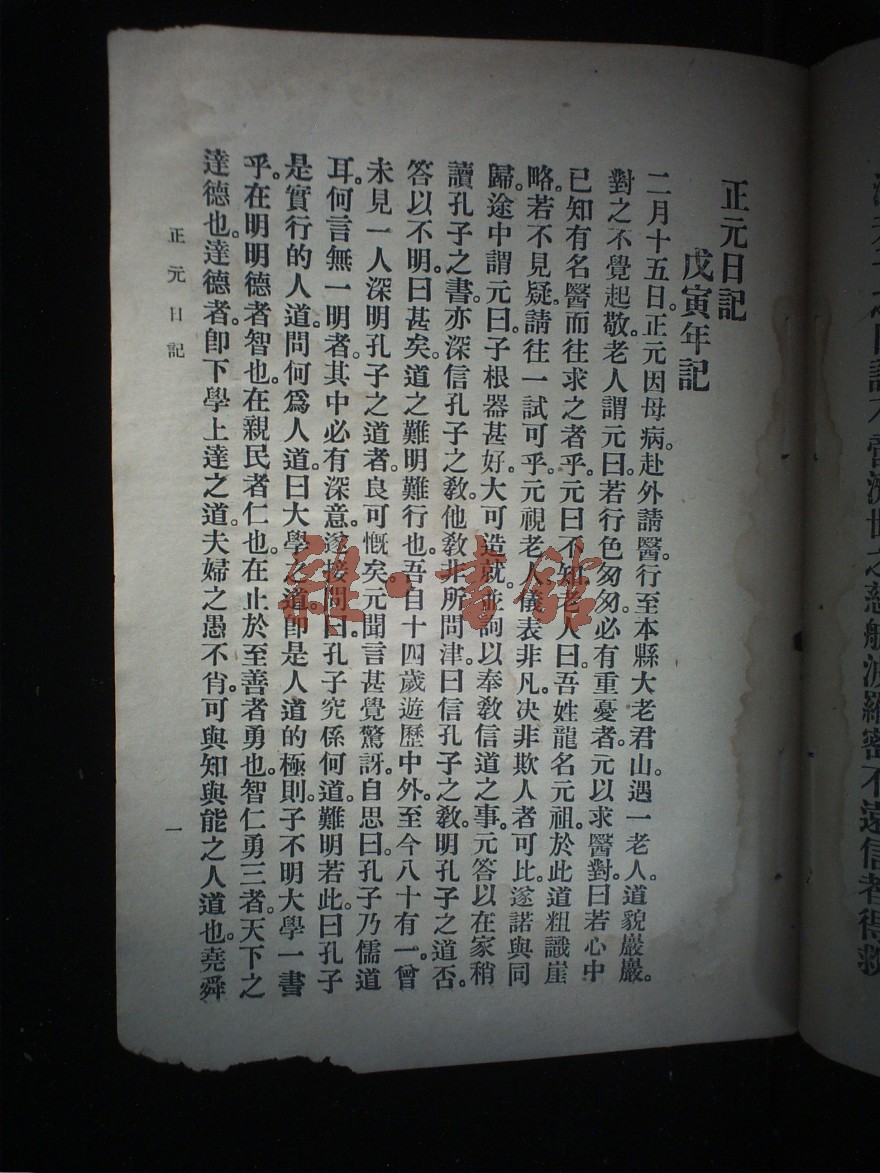 正元日記
戊寅年記
二月十五日。正元因母病。赴外請醫。行至本縣大老君山。遇一老人。道貌巖巖。
對之不覺起敬。老人謂元曰。若行色匆匆。必有重憂者。元以求醫對。曰若心中
已知有名醫而往求之者乎。元曰不知。老人曰。吾姓龍名元祖。於此道粗識崖
略。若不見疑。請往一試可乎。元視老人儀表非凡。決非欺人者可比。遂諾與同
歸。途中謂元曰。子根器甚好。大可造就。並詢以奉教信道之事。元答以在家稍
讀孔子之書。亦深信孔子之教。他教非所問津。曰信孔子之教。明孔子之道否。
答以不明。曰甚矣。道之難明難行也。吾自十四歲遊歷中外。至今八十有一。曾
未見一人深明孔子之道者。良可慨矣。元聞言甚覺驚訝。自思曰。孔子乃儒道
耳。何言無一明者。其中必有深意。遂接問曰。孔子究係何道。難明若此。曰孔子
是實行的人道。問何爲人道。曰大學之道。卽是人道的極則。子不明大學一書
乎。在明明德者智也。在親民者仁也。在止於至善者勇也。智仁勇三者。天下之
達德也。達德者。卽下學上達之道。夫婦之愚不肖。可與知與能之人道也。堯舜
正元日記
一
雜·書館
慈航波羅密不遠信者得救